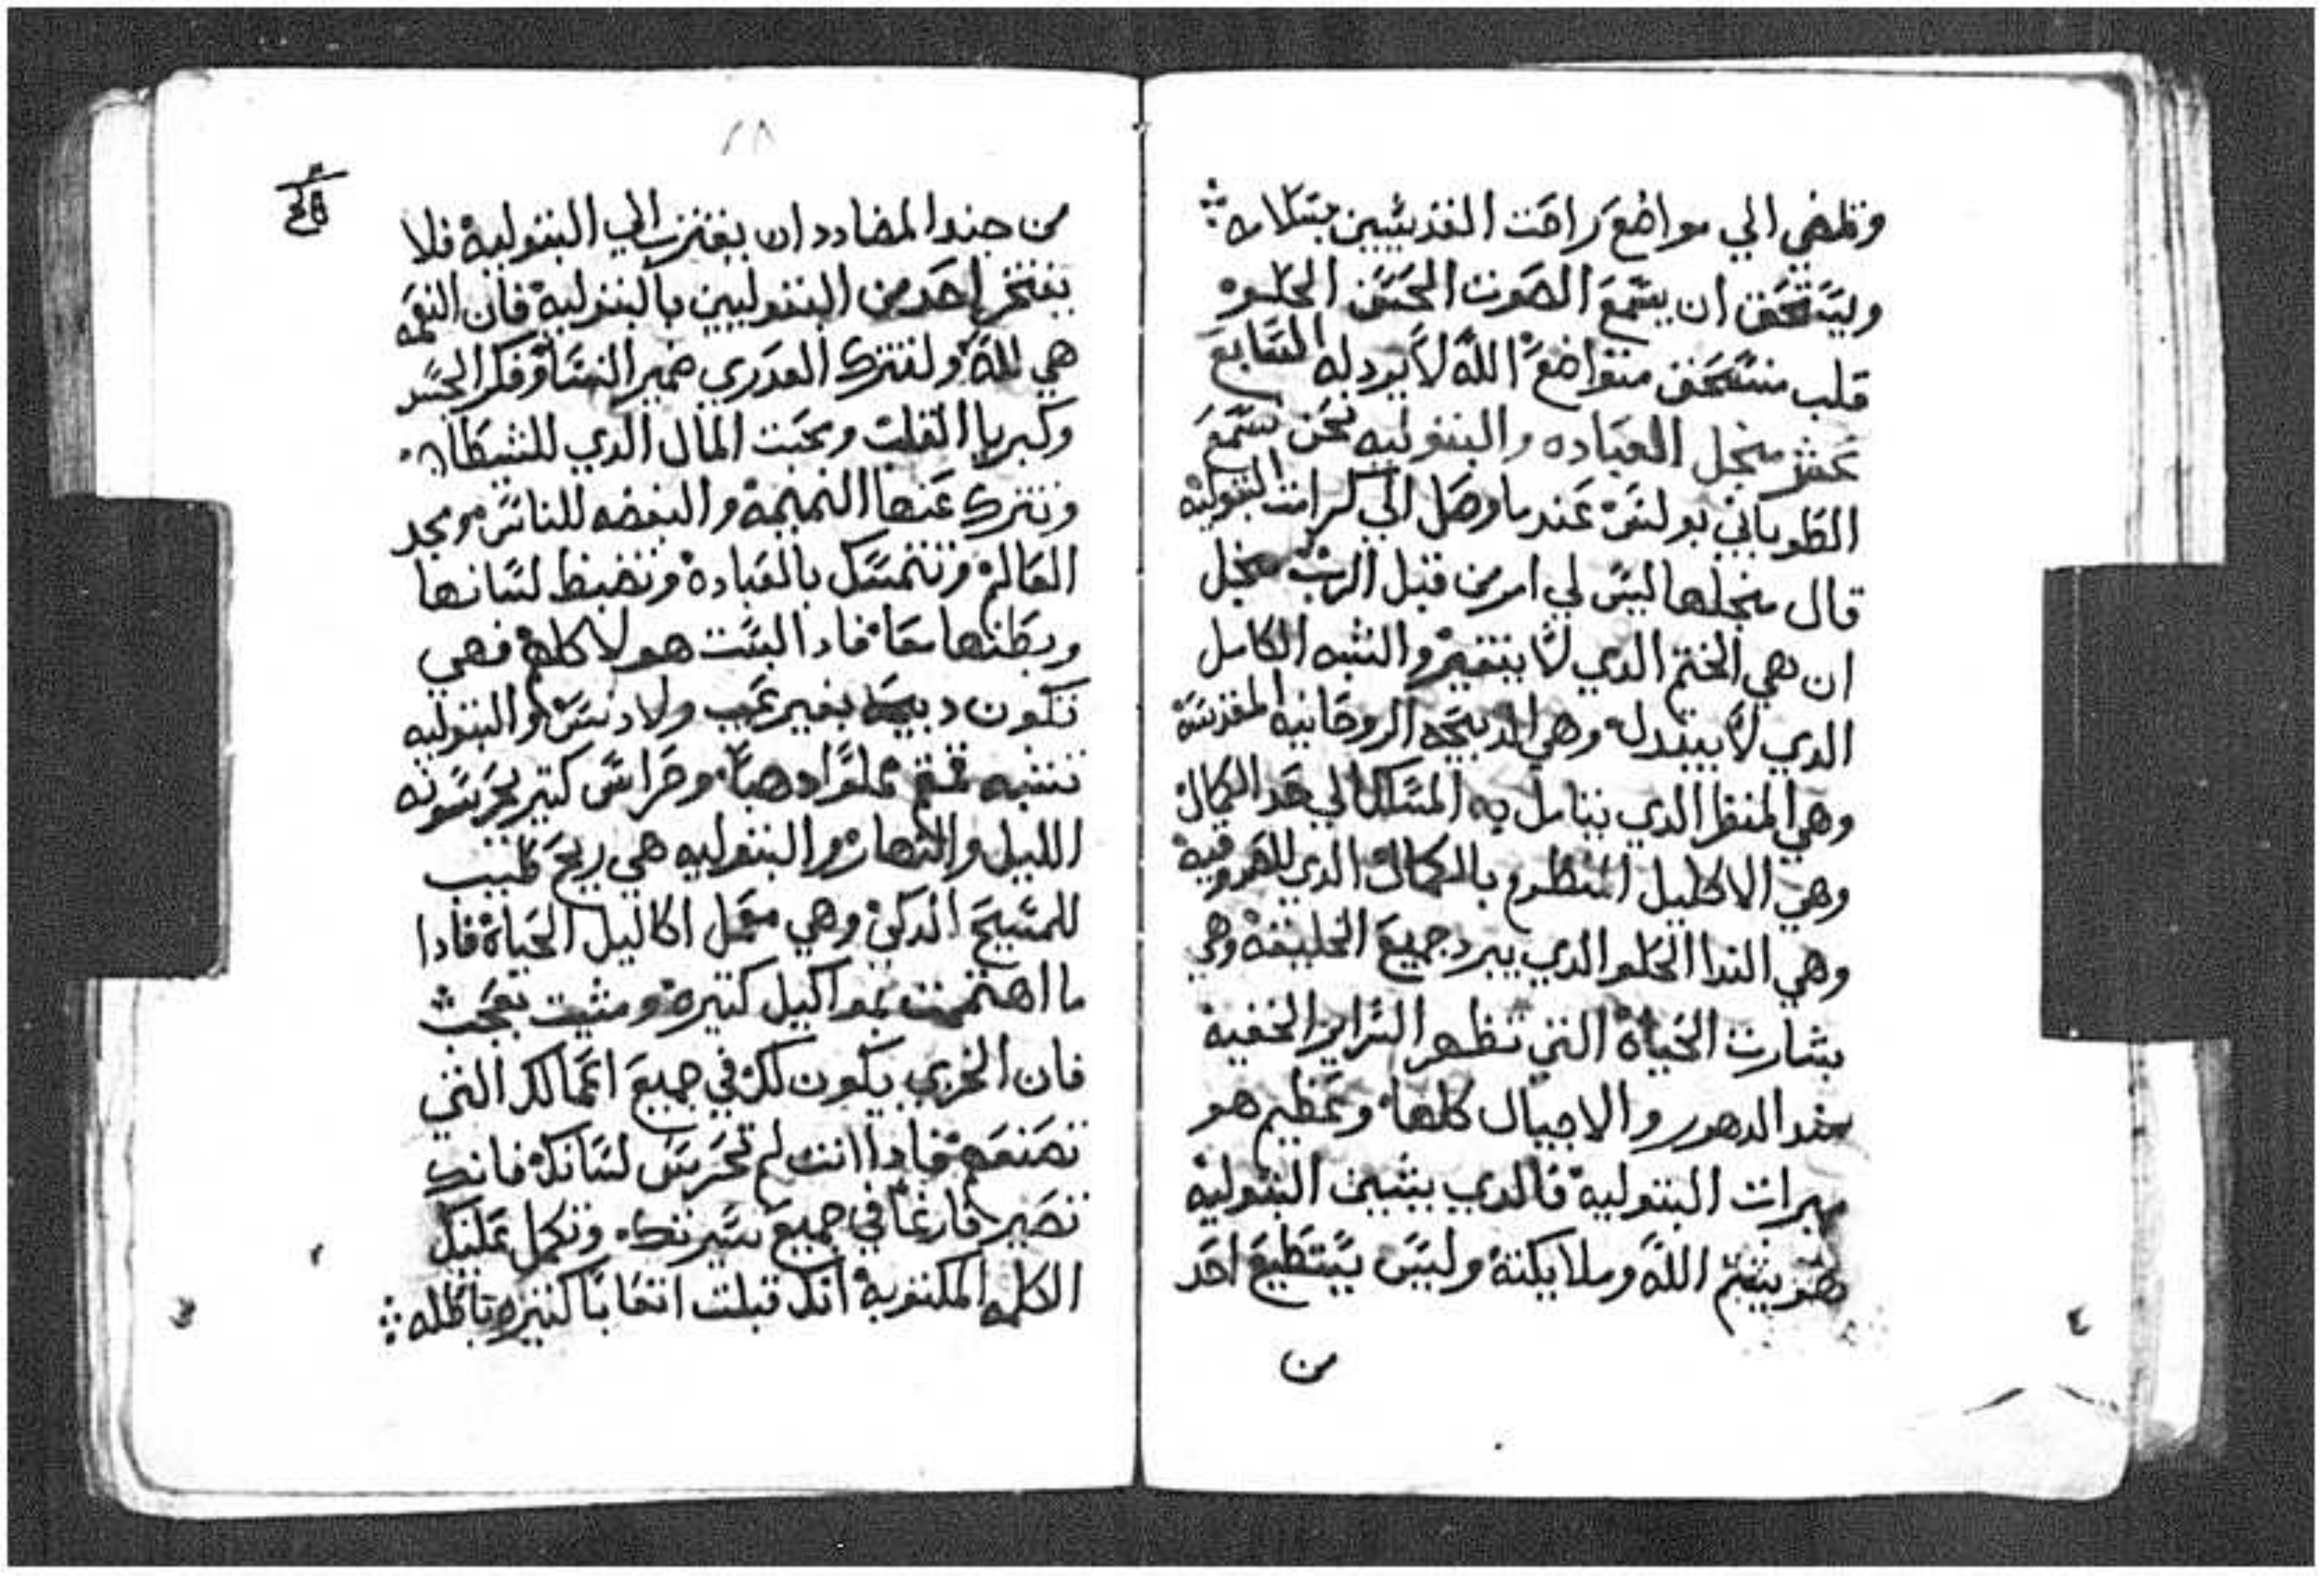 وتمضي الي مواضع راحت القديسين بسلامه ⁘
وليستحق ان يسمع الصوت الحسن الحلو
قلب منسحق متواضع الله لا يردله السابع
عشر منجل العباده والبتوليه نحن نسمع
الطوباني بولس عند ما وصل الي كرامت البتوليه
قال منجلها ليس لي امر من قبل الرب منجل
ان هي الختم الدي لا يتغير والشبه الكامل
الدي لا يبتدل وهي الدبيحه الروحانيه المقدسه
وهي المنظر الدي يتامل به المسكا الي حد الكمال
وهي الاكليل المنظوم بالكمال الدي
وهي الندا الحلو الدي يبرد جميع الخليقه وهي
بشارت الحياة التي تظهر السراير الخفيه
مند الدهور والاجيال كلها وعظيم هو
ميرات البتوليه فالدي يشين البتوليه
فهو يشتم الله وملايكته وليس يستطيع احد
من
٤
٢٨
من جند المضادد ان يقترب الي البتوليه فلا
يفتخر احد من البتوليين بالبتوليه فان النعمه
هي لله ولتترك العدري ضمير النسا وفكر الجسد
وكبريا القلب ومحبت المال الدي للشيطان
وتترك عنها النميمة والبغضه للناس ومجد
العالم وتتمسك بالعبادة وتضبط لسانها
وبطنها معا فادا البست هولا كلهم فهي
تكون دبيحه بغير عيب ولا دنس والبتوليه
تشبه قمقم مملوا دهبا وحراس كتير يحرسونه
الليل والنهار والبتوليه هي ريح طيب
للمسيح الدكي وهي معمل اكاليل الحياة فادا
ما اهتممت بمواكيل كتيره ومشيت بعجب
فان الخزي يكون لك في جميع اعمالك التي
تصنعهم فادا انت لم تحرس لسانك فانك
تصير فارغا في جميع سيرتك وتكمل عليك
الكلمه المكتوبة انك قبلت اتعابا كتيره باطله ⁘